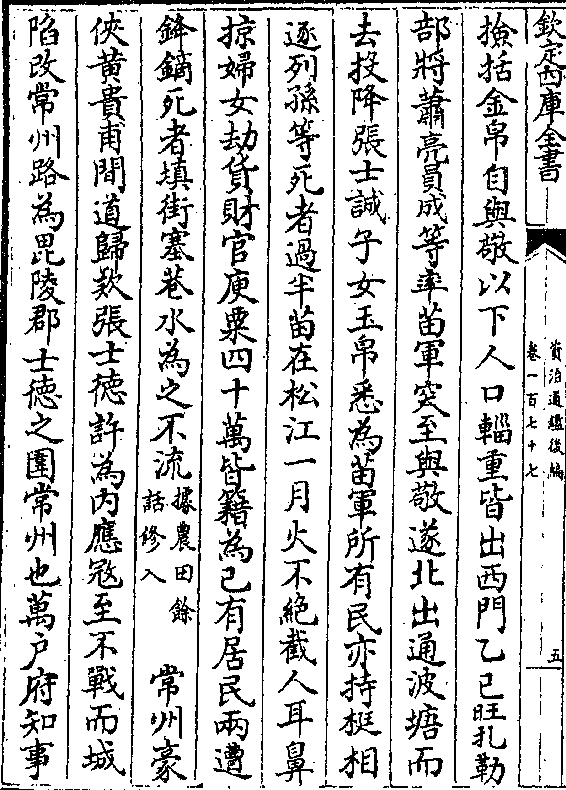 欽定四庫全書
資治通鑑後編
卷一百七十七
五
撿括金帛自與敬以下人口輜重皆出西門乙巳旺扎勒
部將蕭亮員成等率苗軍突至與敬遂北出通波塘而
去投降張士誠子女玉帛悉為苗軍所有民亦持梃相
逐列孫等死者過半苗在松江一月火不絶截人耳鼻
掠婦女劫貨財官庾粟四十萬皆籍為己有居民兩遭
鋒鏑死者填街塞巷水為之不流據農田餘話修入常州豪
俠黃貴甫間道歸欵張士徳許為内應冦至不戰而城
陷改常州路為毘陵郡士徳之圍常州也萬户府知事